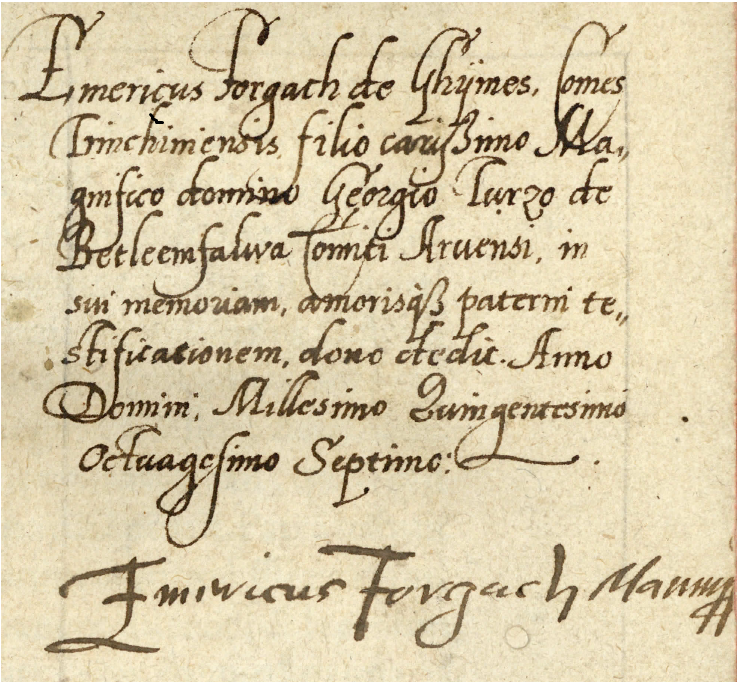 Emericus Forgach de Ghÿmes, Comes
Trinchiniensis filio carißimo Ma„
gnifico domino Georgio Turzo de
Betleemfalwa Comiti Aruensi, in
sui memoriam, amorisq́ꝫ paterni te„
stificationem, dono dedit. Anno
Domini, Millesimo Quingentesimo
Octuagesimo Septimo:
Emericus Forgach Manu